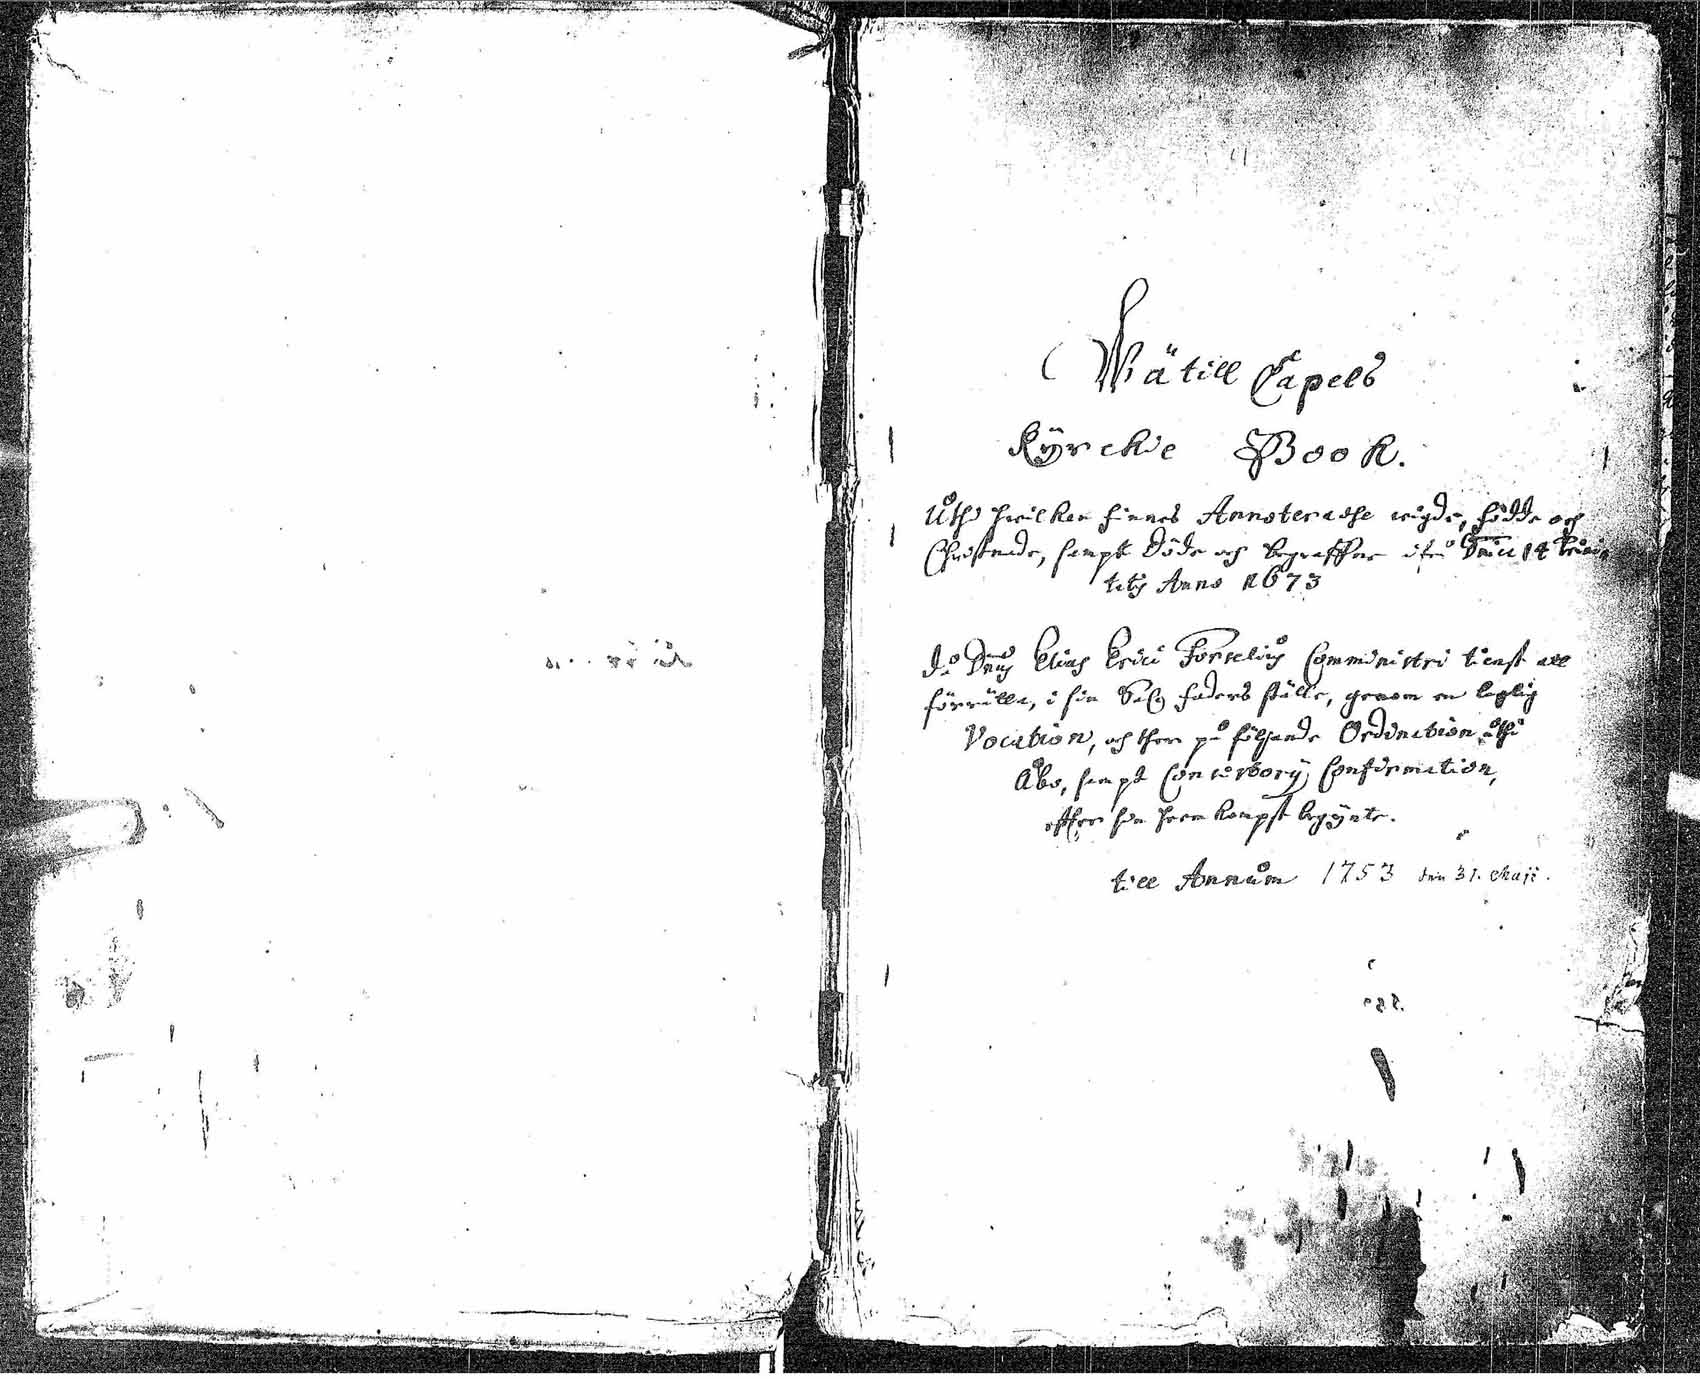 Wätill Capels
Kÿrckie Book.
Uthi hwilken finnes Annoterade wigde, födde och
Christnade, sampt döde och begraffne ifrå Dnica 14 Trini
tatis Anno 1673
då Dnus Elias Erici Forselius Comministri tienst att
förrätta, i sin Sal. faders ställe, genom en laglig
Vocation, och ther på fölljande Ordination uthi
Åbo, sampt Consistorij Confirmation,
effter sin heemkompst begÿnte.
till Annum 1753 den 31. Maji.